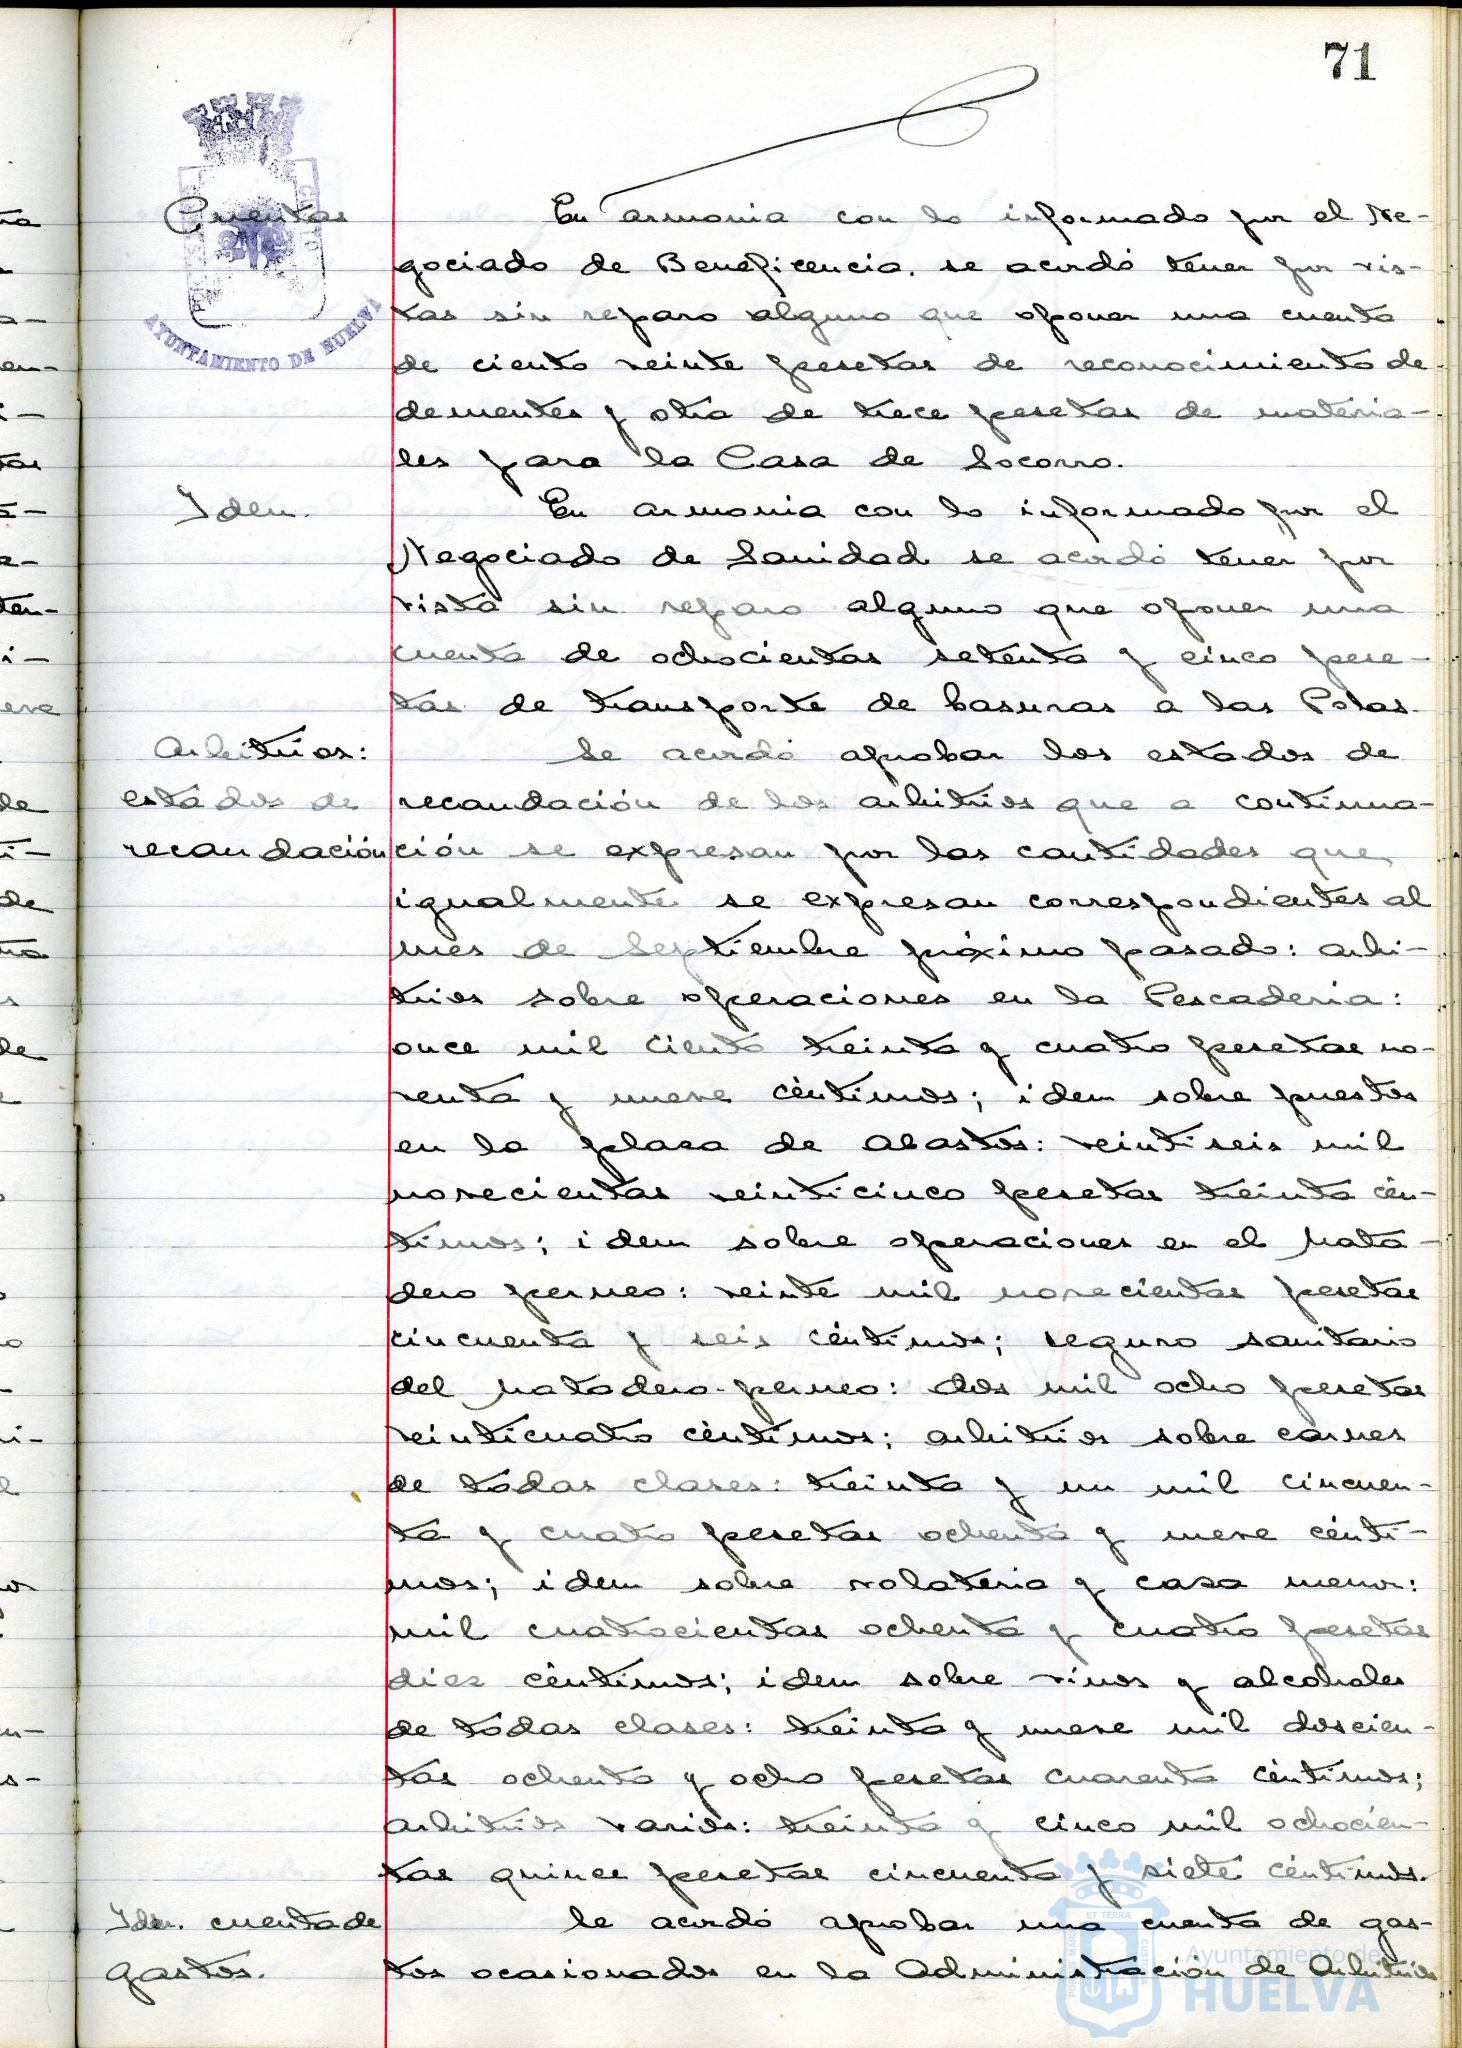 71
Cuentas
En armonia con lo informado por el Ne-
gociado de Beneficencia. se acordó tener por vis-
tas sin reparo alguno que oponer una cuenta
de ciento veinte pesetas de reconocimiento de
dementes y otra de trece pesetas de materia-
les para la Casa de Socorro.
Idem.
En armonia con lo informado por el
Negociado de Sanidad se acordó tener por
vista sin reparo alguno que oponer una
cuenta de ochocientas setenta y cinco pese-
tas de transporte de basuras a las Polas.
Arbitrios:
estados de
recaudación
Se acordó aprobar los estados de
recaudación de los arbitrios que a continua-
ción se expresan por las cantidades que
igualmente se expresan correspondientes al
mes de Septiembre próximo pasado: arbi-
trios sobre operaciones en la Pescaderia:
once mil ciento treinta y cuatro pesetas no-
venta y nueve céntimos; idem sobre puestos
en la plaza de Abastos: veintiseis mil
novecientas veinticinco pesetas treinta cén-
timos; idem sobre operaciones en el Mata-
dero perneo: veinte mil novecientas pesetas
cincuenta y seis céntimos; seguro sanitario
del Matadero-perneo: dos mil ocho pesetas
veinticuatro céntimos; arbitrios sobre carnes
de todas clases: treinta y un mil cincuen-
ta y cuatro pesetas ochenta y nueve cénti-
mos; idem sobre volateria y caza menor:
mil cuatrocientas ochenta y cuatro pesetas
diez céntimos; idem sobre vinos y alcoholes
de todas clases: treinta y nueve mil doscien-
tas ochenta y ocho pesetas cuarenta céntimos;
arbitrios varios: treinta y cinco mil ochocien-
tas quince pesetas cincuenta y siete céntimos.
Idm. cuenta de
gastos.
Se acordó aprobar una cuenta de gas-
tos ocasionados en la Administración de Arbitrios
AYUNTAMIENTO DE HUELVA
Ayuntamiento de
HUELVA